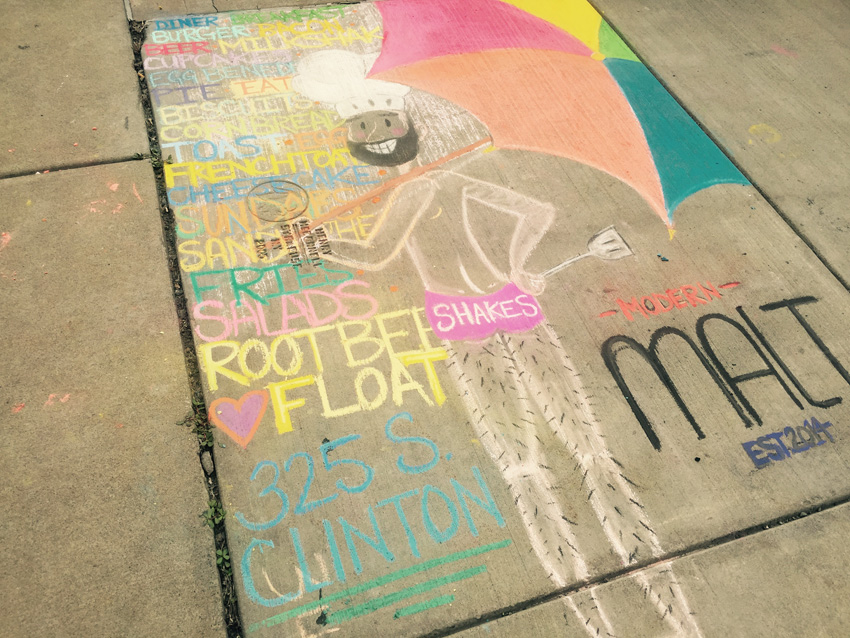 DINER BREAKFAST
BURGER
BEER MILKSHAK
CUPCAKE
EGG BENED
PIE EAT
BISCUITS
CORNBREAD
TOAST
FRENCH TOA
CHEESECAKE
SUNDA
SAND THE
FRIES
SALADS
ROOT BEE
FLOAT
325 S.
CLINTON
SHAKES
-MODERN-
MALT
EST. 2014